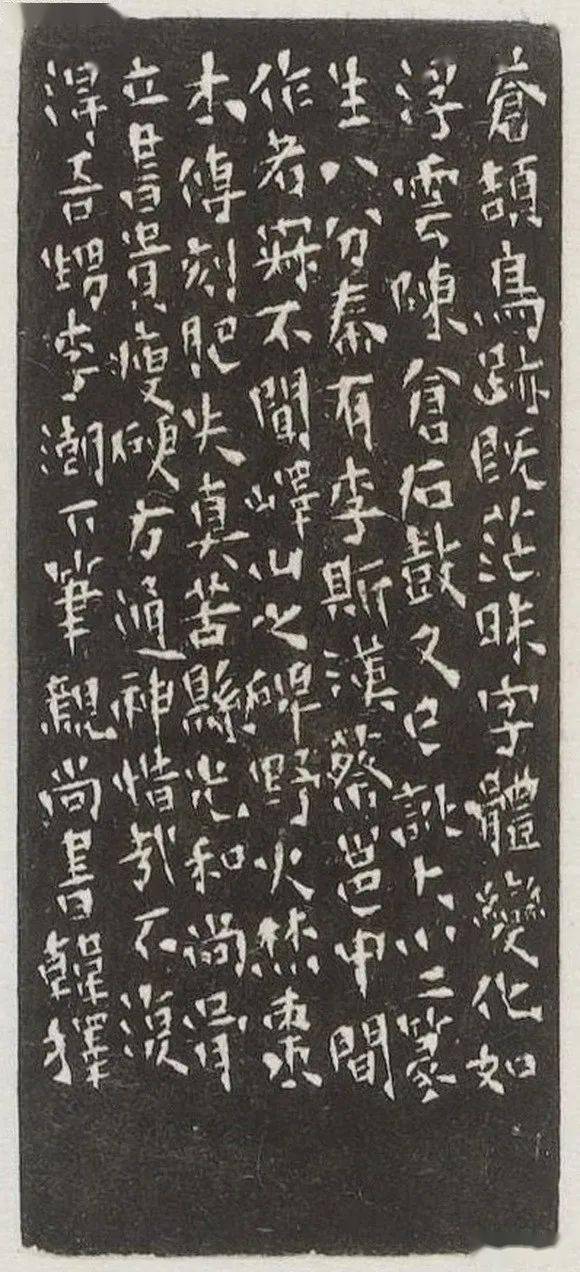 蒼頡鳥跡既茫昧字體變化如
浮雲陳倉石鼓文已訛大小二篆
生八分秦有李斯漢蔡邕中間
作者寂不聞嶧山之碑野火焚棗
木傳刻肥失真苦縣光和尚骨
立書貴瘦硬方通神惜哉不復
得吾甥李潮下筆親尚書韓擇